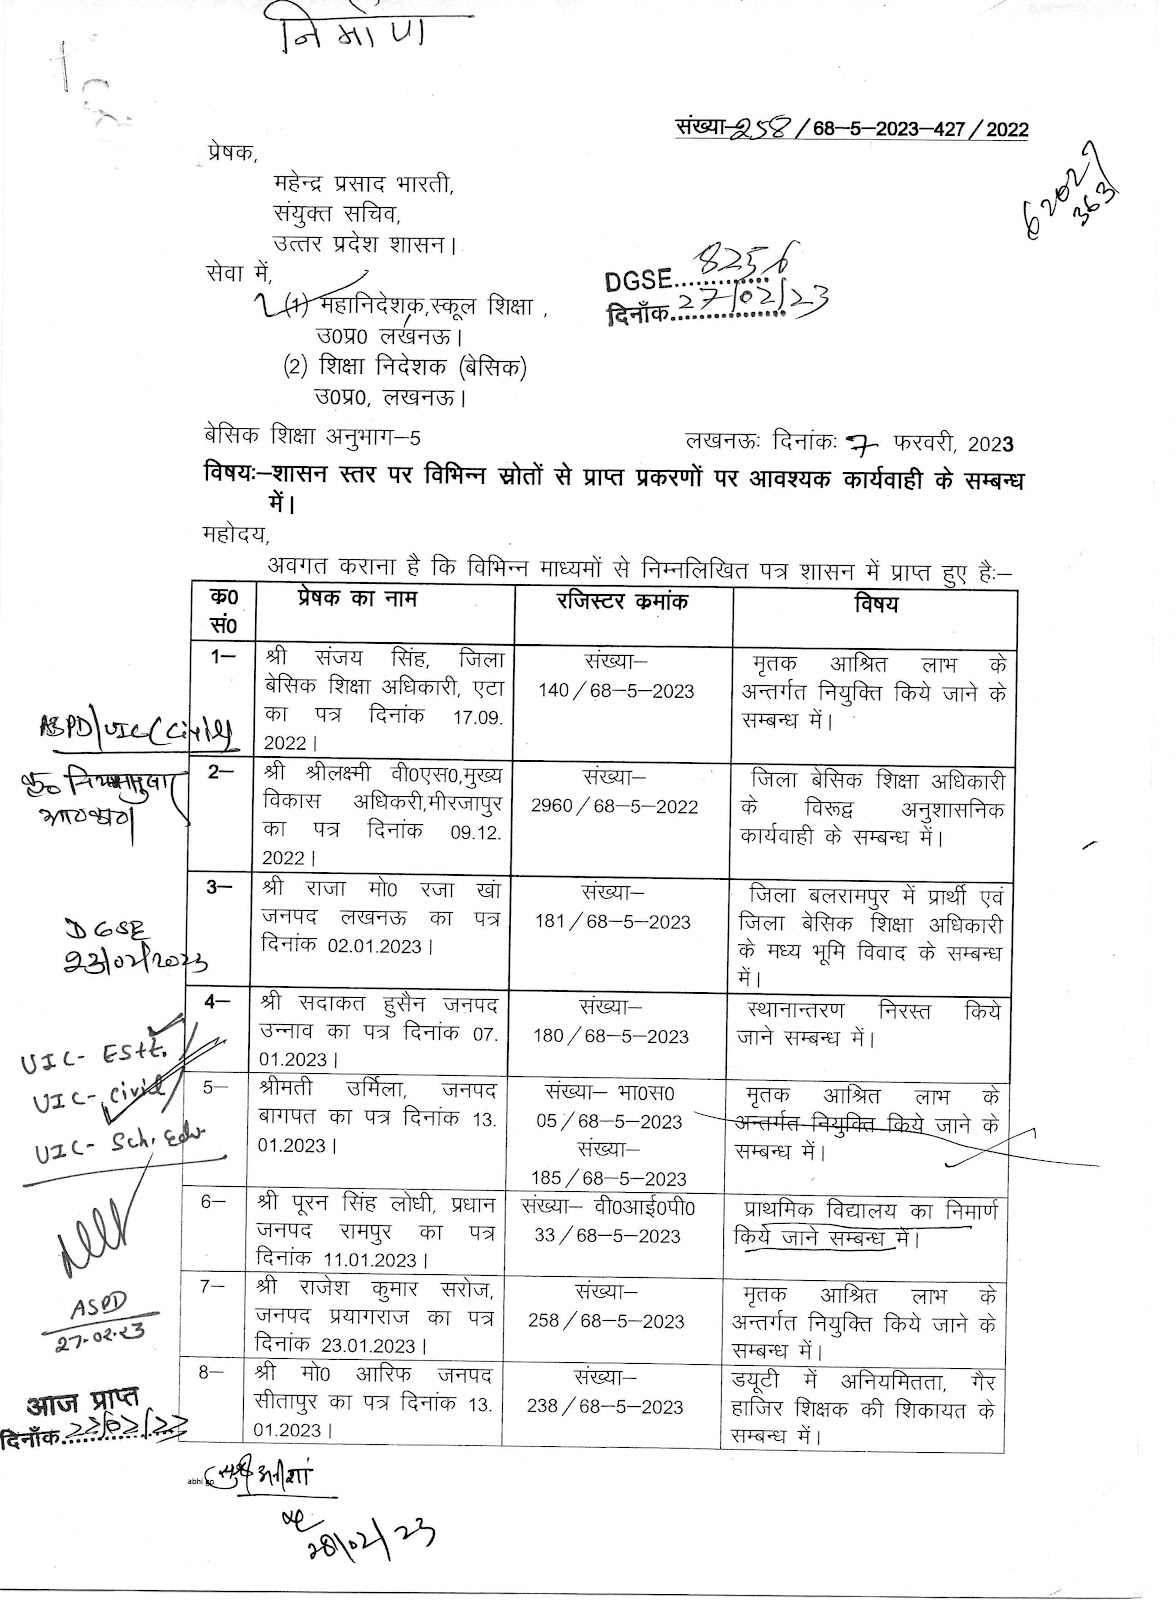 निर्माण
संख्या-258/68-5-2023-427/2022
62027
363
प्रेषक,
महेन्द्र प्रसाद भारती,
संयुक्त सचिव,
उत्तर प्रदेश शासन।
सेवा में,
(1) महानिदेशक,स्कूल शिक्षा,
उ0प्र0 लखनऊ।
DGSE..8256
दिनाँक..27/02/23
(2) शिक्षा निदेशक (बेसिक)
उ0प्र0, लखनऊ।
बेसिक शिक्षा अनुभाग-5 लखनऊः दिनांकः 7 फरवरी, 2023
विषयः-शासन स्तर पर विभिन्न स्रोतों से प्राप्त प्रकरणों पर आवश्यक कार्यवाही के सम्बन्ध
में।
महोदय,
अवगत कराना है कि विभिन्न माध्यमों से निम्नलिखित पत्र शासन में प्राप्त हुए हैः-
क0 सं0 प्रेषक का नाम रजिस्टर कमांक विषय
1- श्री संजय सिंह, जिला
बेसिक शिक्षा अधिकारी, एटा
का पत्र दिनांक 17.09.
2022।
संख्या-
140/68-5-2023
मृतक आश्रित लाभ के
अन्तर्गत नियुक्ति किये जाने के
सम्बन्ध में।
2- श्री श्रीलक्ष्मी वी0एस0,मुख्य
विकास अधिकरी,मीरजापुर
का पत्र दिनांक 09.12.
2022।
संख्या-
2960/68-5-2022
जिला बेसिक शिक्षा अधिकारी
के विरूद्व अनुशासनिक
कार्यवाही के सम्बन्ध में।
3- श्री राजा मो0 रजा खां
जनपद लखनऊ का पत्र
दिनांक 02.01.2023।
संख्या-
181/68-5-2023
जिला बलरामपुर में प्रार्थी एवं
जिला बेसिक शिक्षा अधिकारी
के मध्य भूमि विवाद के सम्बन्ध
में।
4- श्री सदाकत हुसैन जनपद
उन्नाव का पत्र दिनांक 07.
01.2023।
संख्या-
180/68-5-2023
स्थानान्तरण निरस्त किये
जाने सम्बन्ध में।
5- श्रीमती उर्मिला, जनपद
बागपत का पत्र दिनांक 13.
01.2023।
संख्या- भा0स0
05/68-5-2023
संख्या-
185/68-5-2023
मृतक आश्रित लाभ के
अन्तर्गत नियुक्ति किये जाने के
सम्बन्ध में।
6- श्री पूरन सिंह लोधी, प्रधान
जनपद रामपुर का पत्र
दिनांक 11.01.2023।
संख्या- वी0आई0पी0
33/68-5-2023
प्राथमिक विद्यालय का निमार्ण
किये जाने सम्बन्ध में।
7- श्री राजेश कुमार सरोज,
जनपद प्रयागराज का पत्र
दिनांक 23.01.2023।
संख्या-
258/68-5-2023
मृतक आश्रित लाभ के
अन्तर्गत नियुक्ति किये जाने के
सम्बन्ध में।
8- श्री मो0 आरिफ जनपद
सीतापुर का पत्र दिनांक 13.
01.2023।
संख्या-
238/68-5-2023
डयूटी में अनियमितता, गैर
हाजिर शिक्षक की शिकायत के
सम्बन्ध में।
ASPD/UIC(Civil)
DGSE
23/02/2023
UIC- Estt.
UIC- Civil
UIC- Sch. Edu.
ASPD
27.02.23
आज प्राप्त
दिनाँक..27/02/23
abhi go
28/02/23